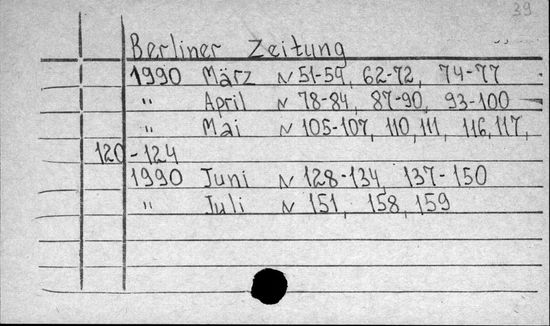 39
Berliner Zeitung
1990 März N 51-59, 62-72, 74-77
" April N 78-84, 87-90, 93-100
" Mai N 105-107, 110, 111, 116, 117,
120-124
1990 Juni N 128-134, 137-150
" Juli N 151, 158, 159